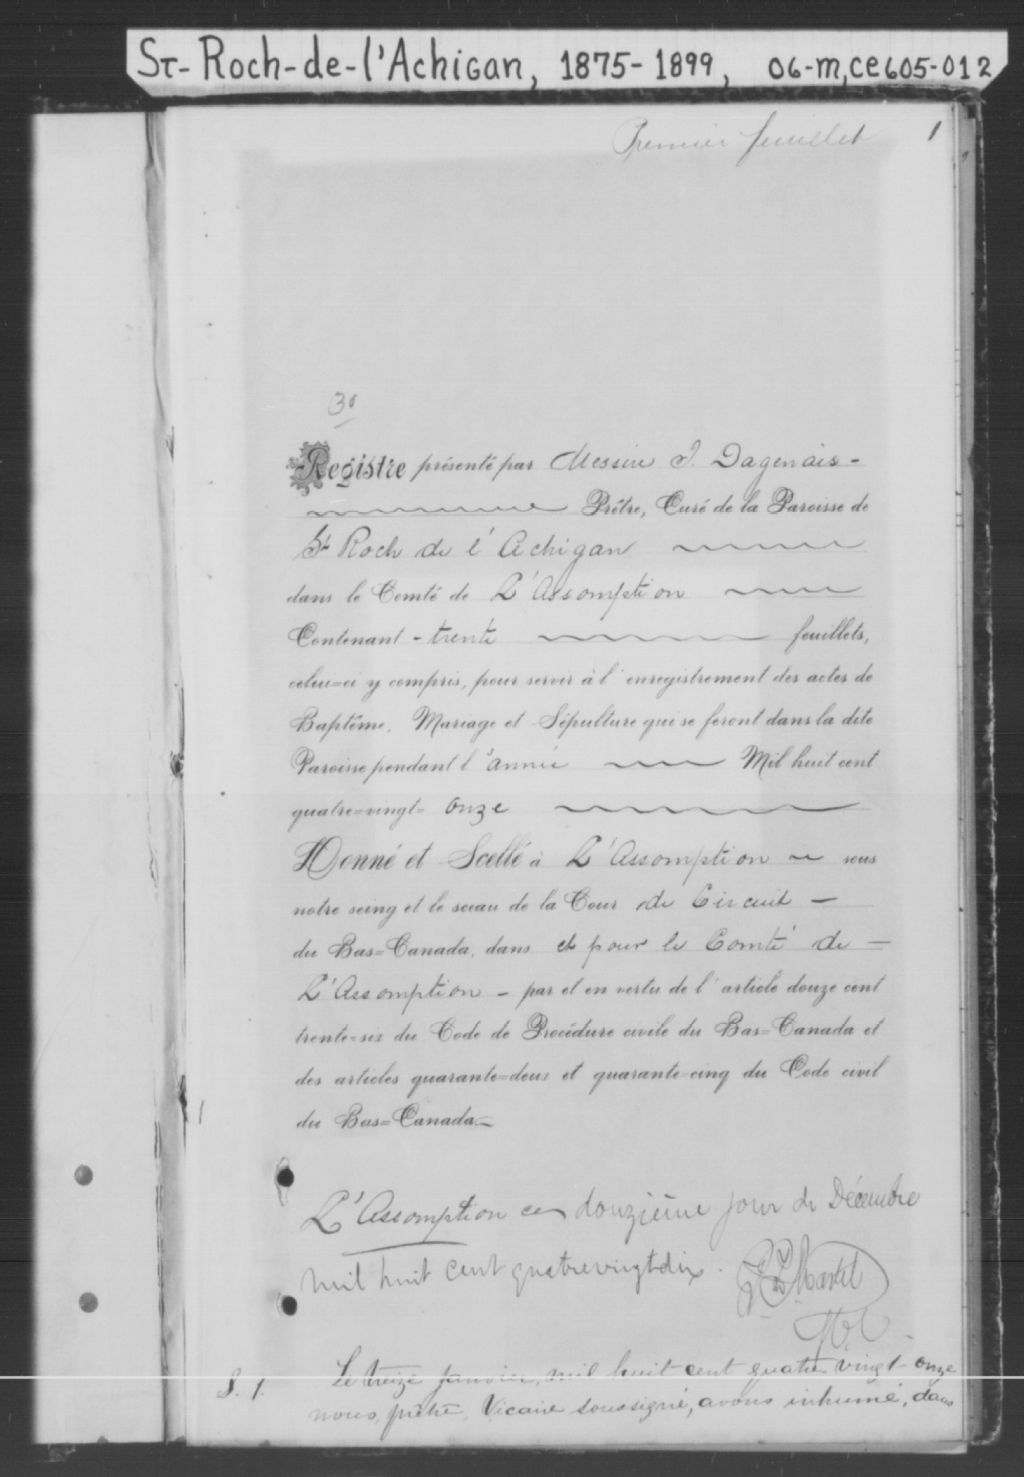 St-Roch-de-l'Achigan, 1875-1899, 06-m,ce605-012
Premier feuillet
1
30
Registre présenté par Messire J. Dagenais -
Prêtre, Curé de la Paroisse de
St Roch de l'Achigan
dans le Comté de L'Assomption
Contenant - trente feuillets,
celui=ci y compris, pour servir à l'enregistrement des actes de
Baptême, Mariage et Sépulture qui se feront dans la dite
Paroisse pendant l'année Mil huit cent
quatre=vingt= onze
Donné et Scellé à L'Assomption sous
notre seing et le sceau de la Cour de Circuit -
du Bas=Canada, dans et pour le Comté de -
L'Assomption - par et en vertu de l'article douze cent
trente=six du Code de Procédure civile du Bas=Canada et
des articles quarante=deux et quarante=cinq du Code civil
du Bas=Canada.-
L'Assomption ce douzième jour de Décembre
mil huit cent quatrevingtdix.
Martel
S. 1. Le treize Janvier, mil huit-cent quatre vingt-onze
nous, prêtre, Vicaire soussigné, avons inhumé, dans